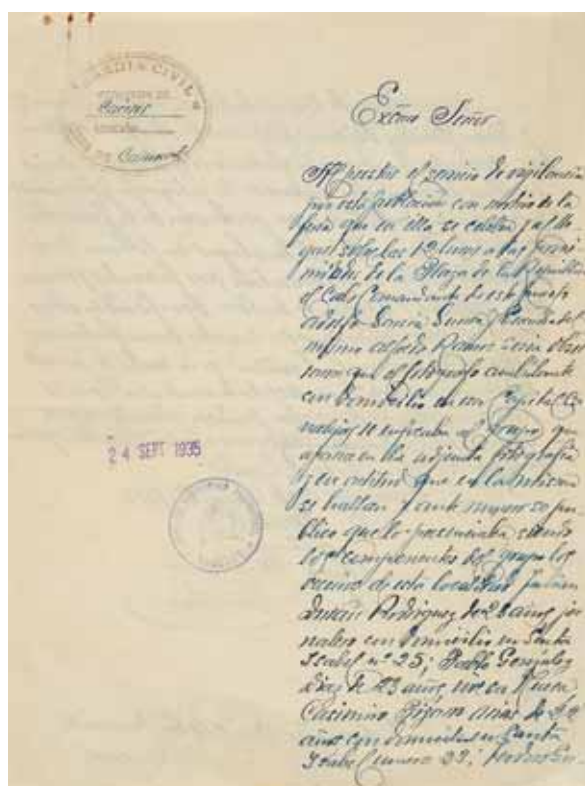 GUARDIA CIVIL
Excmo Señor
Al prestar el servicio de vigilancia
por esta población con motivo de la
feria que en ella se celebra y al lle
gar sobre las 12 horas a las proxi
midades de la Plaza de la República
el Cabo Comandante de este puesto
García y Guardia del
mismo Alfredo Ramos obser
varon que el fotografo ambulante
con domicilio en esa Capital
se enfocaba al grupo que
aparece en la adjunta fotografía
y en actitud que en la misma
se hallan y ante numeroso pu
blico que lo presenciaba siendo
los componentes del grupo los
vecinos de esta localidad Julian
Durán Rodriguez de 28 años jor
nalero con domicilio en Santa
Isabel nº 25; Pablo Gonzalez
Diaz de 23 años, en Nueva
Casimiro Arias de 22
años con domicilio en Santa
Isabel número 32;
24 SEPT 1935